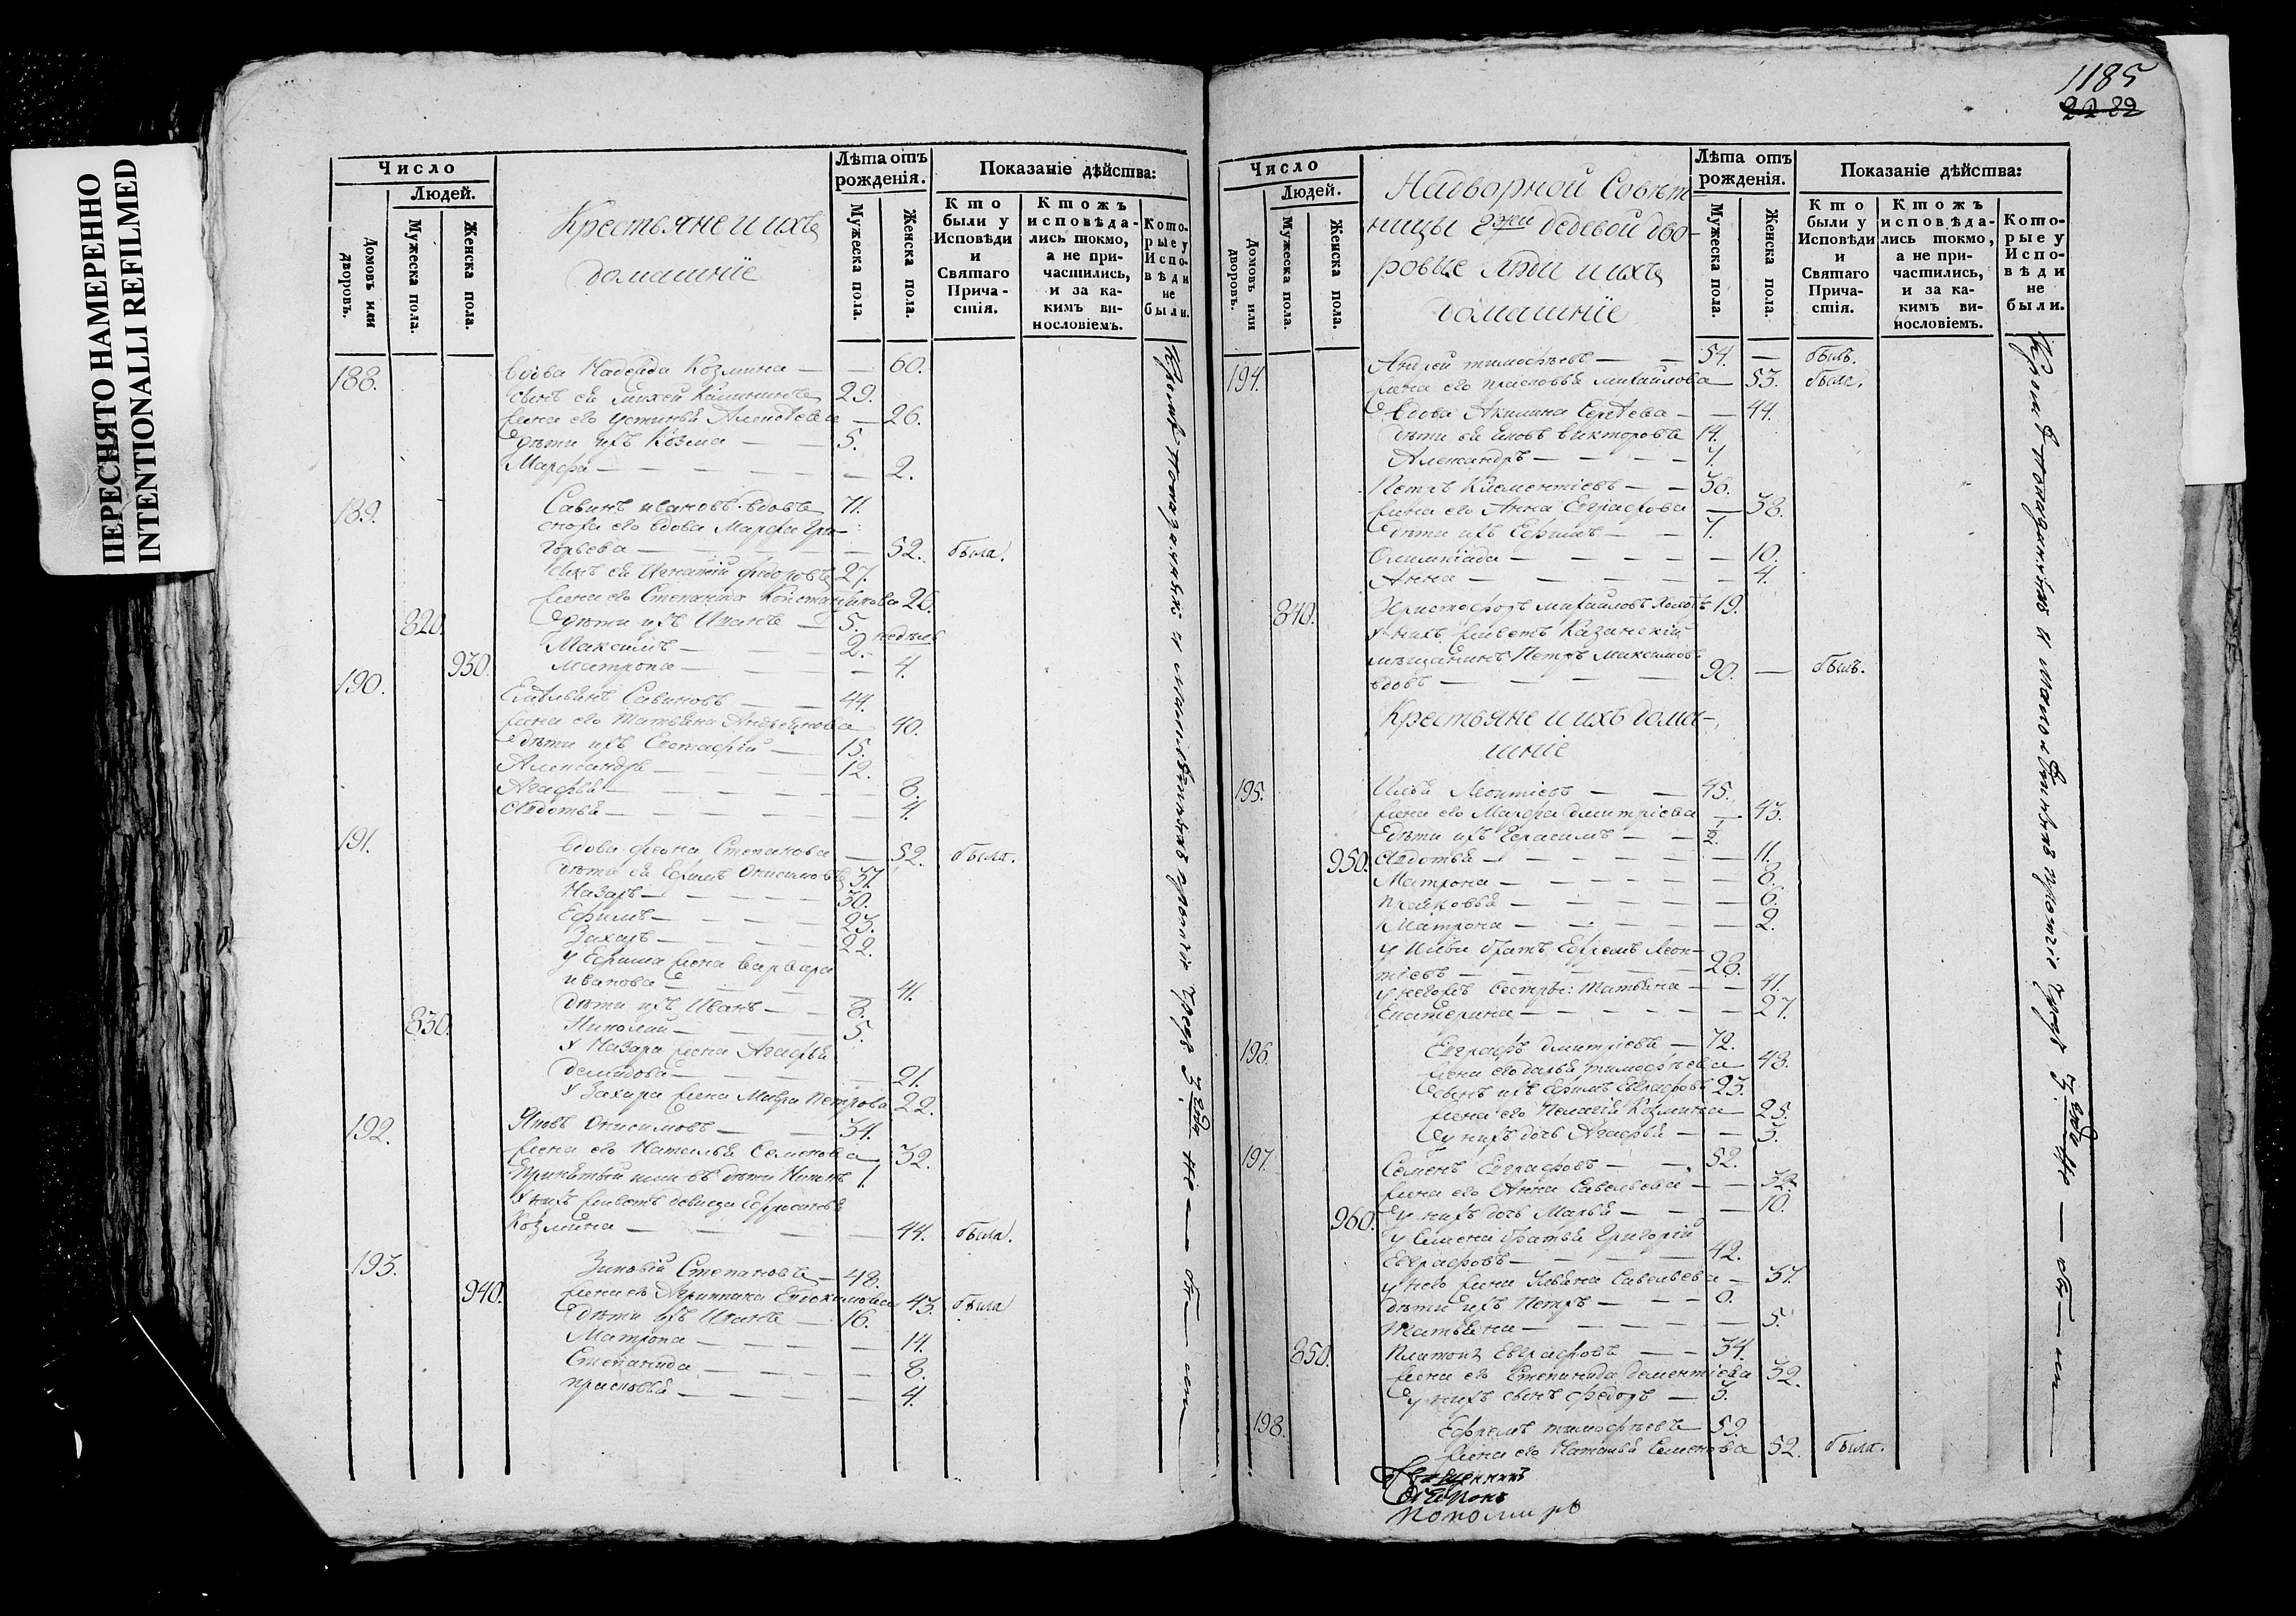 ПЕРЕСНЯТО НАМЕРЕННО
INTENTIONALLI REFILMED
Число
Людей.
Домовъ или дворовъ.
Мужеска пола.
Женска пола.
Крестьяне и ихъ
домашнiе
Лѣта отъ рожденiя.
Мужеска пола.
Женска пола.
Показанiе дѣйства:
Кто были у Исповѣди и Святаго Причастiя.
Ктожъ исповѣдались токмо, а не причастились, и за какимъ винословiемъ.
Которые у Исповѣди не были.
188. вдова Надежда Козмина — — 60.
сынъ ей Михей Калининъ 29.
жена его Устинья Алексѣева — 26.
дѣти ихъ Козма — — 5.
Марфа — — — — — 2.
189. Савинъ Ивановъ вдовъ 71.
сноха его вдова Марфа Гри-
горьева — — — 52. была.
сынъ ей Игнатiй Федоровъ 27.
жена его Степанида Константинова 26.
820. дѣти ихъ Иванъ — 5. недѣль
Максимъ — — 2.
930. Матрона — — — 4.
190. Емельянъ Савиновъ — — 44.
жена его Татьяна Андреянова 40.
дѣти ихъ Евстафiй — 15.
Александръ — — — 12.
Агафья — — — — — 8.
Авдотья — — — — — 4.
191. вдова Феона Степанова — 52. была.
дѣти ей Ефимъ Онисимовъ 37.
Назаръ — — — — 30.
Ефимъ — — — — 23.
Захаръ — — — — 22.
у Ефима жена Варвара
Иванова — — — 41.
дѣти ихъ Иванъ — — 8.
830. Николай — — — 5.
У Назара жена Агафья
Демидова — — — — 21.
У Захара жена Мавра Петрова 22.
192. Яковъ Онисимовъ — — 34.
жена его Наталья Семенова 32.
Принятый ими въ дѣти Никонъ 1.
У нихъ живетъ девица Ефросинья
Козмина — — — — 44. была.
193. Зиновiй Степановъ — 48.
940. жена его Агрипина Евдокимова 43. была
дѣти ихъ Иванъ — 16.
Матрона — — — — 14.
Степанида — — — — 8.
Прасковья — — — — 4.
Кромѣ показанныхъ и малолѣтныхъ прочiе чрезъ 3 года не — — бы — ли —
1185
2282
Число
Людей.
Домовъ или дворовъ.
Мужеска пола.
Женска пола.
Надворной Совѣт-
ницы
дво-
ровые люди и ихъ
домашнiе
Лѣта отъ рожденiя.
Мужеска пола.
Женска пола.
Показанiе дѣйства:
Кто были у Исповѣди и Святаго Причастiя.
Ктожъ исповѣдались токмо, а не причастились, и за какимъ винословiемъ.
Которые у Исповѣди не были.
194. Андрей Тимофѣевъ — — 54. — былъ.
жена его Прасковья Михайлова — 53. была.
вдова Акилина Сергѣева — — 44.
дѣти ей Яковъ Викторовъ 14.
Александръ — — — — 7.
Петръ Климентiевъ — — 36.
жена его Анна Евграфова — 38.
дѣти ихъ Ефимъ — — 7.
Олимпiада — — — — — 10.
Анна — — — — — — 4.
840. Христофоръ Михайловъ холостъ 19.
У нихъ живетъ Казанскiй
мещанинъ Петръ Максимовъ
вдовъ — — — — 90. — былъ.
Крестьяне и ихъ дома-
шнiе
195. Илья Леонтiевъ — — 45.
жена его Марфа Дмитрiева — 43.
дѣти ихъ Герасимъ — — 1/2.
950. Авдотья — — — — — — 11.
Матрона — — — — — — 8.
Прасковья — — — — — 6.
Матрона — — — — — 2.
у Ильи братъ Ефремъ Леон-
тiевъ — — — — — 28.
у негожъ сестры: Татьяна — — 41.
Екатерина — — — — — — 27.
196. Евграфъ Дмитрiевъ — 72.
жена его Дарья Тимофѣева 48.
сынъ ихъ Ефимъ Евграфовъ 23.
жена его Пелагiя Козмина — 25.
у нихъ дочь Агафья — — 3.
197. Семенъ Евграфовъ — — 52.
жена его Анна Савельева — — 32.
960. у нихъ дочь Марья — — — 10.
у Семена братья Григорiй
Евграфовъ — — — — 42.
у него жена Ульяна Савельева — 37.
дѣти ихъ Петръ — — — 8.
Татьяна — — — — — — 5.
850. Платонъ Евграфовъ — — 34.
жена его Степанида Дементiева 32.
у нихъ сынъ Федоръ — 3.
198. Ефремъ Тимофѣевъ — 59.
жена его Наталья Семенова 52 была.
Кромѣ показанныхъ и малолѣтныхъ прочiе чрезъ 3 года не — — бы — ли —
Священникъ
Дiаконъ
Пономарь